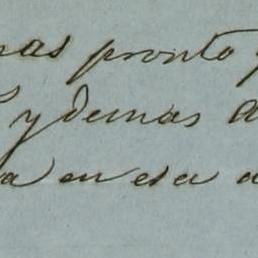 mas pronto
y demas
en esa